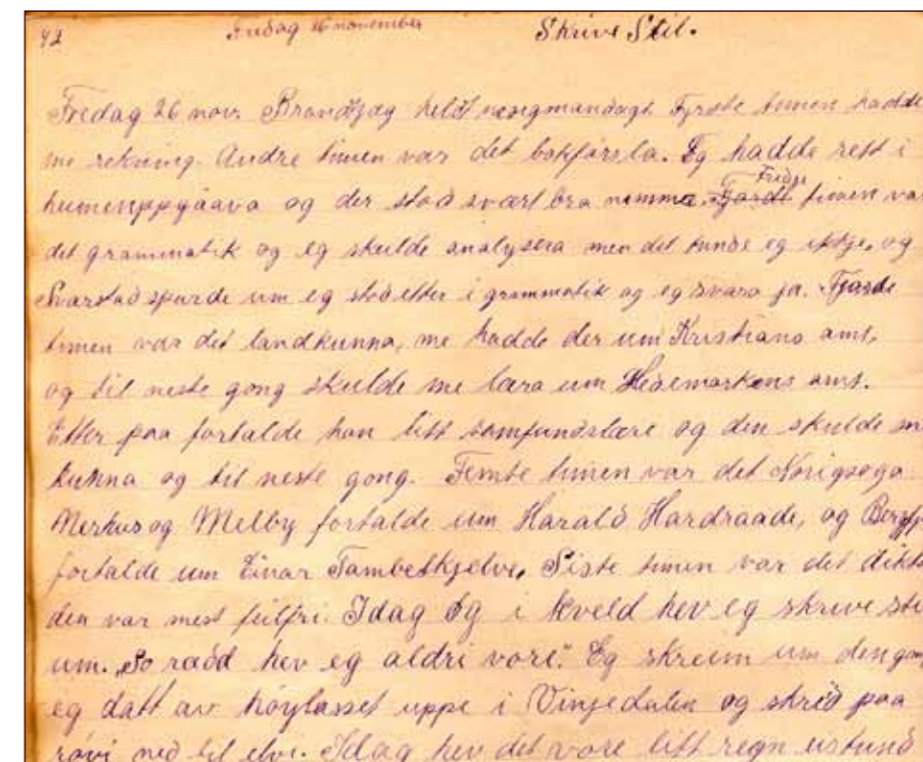 42 Fredag 26 november Skrive Stil.
Fredag 26 novr. Brandjag heldt Fyrste timen hadde
me rekning. Andre timen var det bokførsla. Eg hadde rett i
heimeuppgaava og der stod svært bra Fridje timen va
det grammatik og eg skulde analysera men det kunde eg ikkje, og
Svarstad spurde um eg stod etter i grammatik og eg svara ja. Fjorde
timen var det landkunna, me hadde der um Kristians amt,
og til neste gong skulde me læra um Hedemarkens amt.
Etter paa fortalde han litt samfundslære og den skulde m
kunna og til neste gong. Femte timen var det Norigsoga
og Melby fortalde um Harald Hardraade, og
fortalde um Einar Tambeskjelve. Siste timen var det dikt
den var mest feilfri. Idag og i kveld hev eg skrive sti
um. "So rædd hev eg aldri vore." Eg skreiv um den gon
eg datt av høylasset uppe i Vinjedalen og skreid paa
rovi ned til elvi. Idag hev det vore litt regn